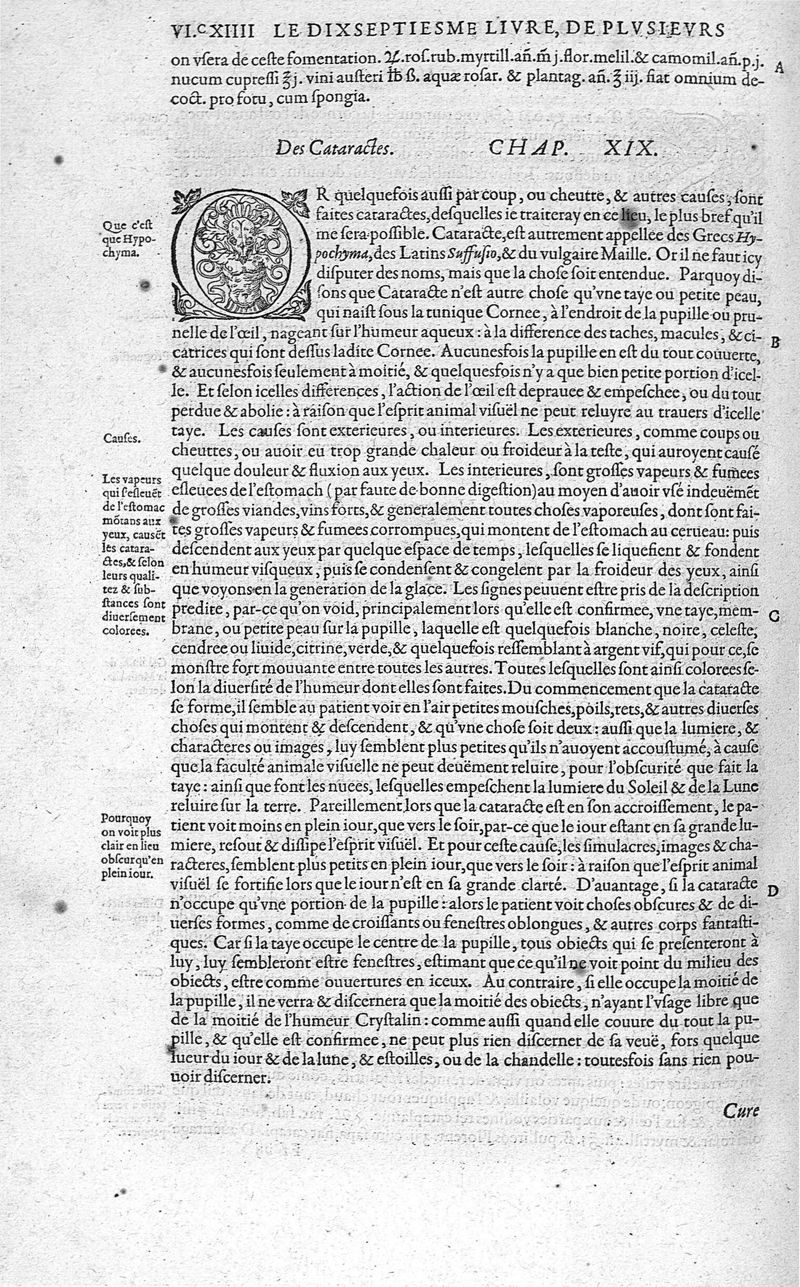 VI.C XIIII LE DIXSEPTIESME LIVRE, DE PLVSIEVRS
on vsera de ceste fomentation. ♃. ros. rub. myrtill. añ. m̃ j. flor. melil. & camomil. añ. p. j.
A
nucum cupressi ʒ̃ j. vini austeri ℔ ß. aquæ rosar. & plantag. añ. ʒ̃ iij. fiat omnium de-
coct. pro fotu, cum spongia.
Des Cataractes. CHAP. XIX.
OR quelquefois aussi par coup, ou cheutte, & autres causes, sont
faites cataractes, desquelles ie traiteray en ce lieu, le plus bref qu'il
me sera possible. Cataracte, est autrement appellée des Grecs Hy-
pochyma, des Latins Suffusio, & du vulgaire Maille. Or il ne faut icy
disputer des noms, mais que la chose soit entendue. Parquoy di-
sons que Cataracte n'est autre chose qu'vne taye ou petite peau,
qui naist sous la tunique Cornee, à l'endroit de la pupille ou pru-
nelle de l'œil, nageant sur l'humeur aqueux : à la difference des taches, macules, & ci-
catrices qui sont dessus ladite Cornee. Aucunesfois la pupille en est du tout couuerte,
& aucunesfois seulement à moitié, & quelquesfois n'y a que bien petite portion d'icel-
le. Et selon icelles differences, l'action de l'œil est deprauee & empeschee, ou du tout
perdue & abolie : à raison que l'esprit animal visuël ne peut reluyre au trauers d'icelle
taye. Les causes sont exterieures, ou interieures. Les exterieures, comme coups ou
cheuttes, ou auoir eu trop grande chaleur ou froideur à la teste, qui auroyent causé
quelque douleur & fluxion aux yeux. Les interieures, sont grosses vapeurs & fumees
esleuees de l'estomach (par faute de bonne digestion) au moyen d'auoir vsé indeuëmẽt
de grosses viandes, vins forts, & generalement toutes choses vaporeuses, dont sont fai-
tes grosses vapeurs & fumees corrompues, qui montent de l'estomach au cerueau: puis
descendent aux yeux par quelque espace de temps, lesquelles se liquefient & fondent
en humeur visqueux, puis se condensent & congelent par la froideur des yeux, ainsi
que voyons en la generation de la glace. Les signes peuuent estre pris de la description
predite, par-ce qu'on void, principalement lors qu'elle est confirmee, vne taye, mem-
brane, ou petite peau sur la pupille, laquelle est quelquefois blanche, noire, celeste,
cendree ou liuide, citrine, verde, & quelquefois ressemblant à argent vif, qui pour ce, se
monstre fort mouuante entre toutes les autres. Toutes lesquelles sont ainsi colorees se-
lon la diuersité de l'humeur dont elles sont faites. Du commencement que la cataracte
se forme, il semble au patient voir en l'air petites mousches, poils, rets, & autres diuerses
choses qui montent & descendent, & qu'vne chose soit deux : aussi que la lumiere, &
characteres ou images, luy semblent plus petites qu'ils n'auoyent accoustumé, à cause
que la faculté animale visuelle ne peut deuëment reluire, pour l'obscurité que fait la
taye : ainsi que font les nuees, lesquelles empeschent la lumiere du Soleil & de la Lune
reluire sur la terre. Pareillement, lors que la cataracte est en son accroissement, le pa-
tient voit moins en plein iour, que vers le soir, par-ce que le iour estant en sa grande lu-
miere, resout & dissipe l'esprit visuël. Et pour ceste cause, les simulacres, images & cha-
racteres, semblent plus petits en plein iour, que vers le soir : à raison que l'esprit animal
visuël se fortifie lors que le iour n'est en sa grande clarté. D'auantage, si la cataracte
n'occupe qu'vne portion de la pupille : alors le patient voit choses obscures & de di-
uerses formes, comme de croissants ou fenestres oblongues, & autres corps fantasti-
ques. Car si la taye occupe le centre de la pupille, tous obiects qui se presenteront à
luy, luy sembleront estre fenestres, estimant que ce qu'il ne voit point du milieu des
obiects, estre comme ouuertures en iceux. Au contraire, si elle occupe la moitié de
la pupille, il ne verra & discernera que la moitié des obiects, n'ayant l'vsage libre que
de la moitié de l'humeur Crystalin : comme aussi quand elle couure du tout la pu-
pille, & qu'elle est confirmee, ne peut plus rien discerner de sa veuë, fors quelque
lueur du iour & de la lune, & estoilles, ou de la chandelle : toutesfois sans rien pou-
uoir discerner.
Cure
Que c'est
que Hypo-
chyma.
B
Causes.
Les vapeurs
qui s'esleuẽt
de l'estomac
mõtans aux
yeux, causẽt
les catara-
ctes, & selon
leurs quali-
tez & sub-
stances sont
diuersement
colorees.
C
Pourquoy
on voit plus
clair en lieu
obscur qu'en
plein iour.
D